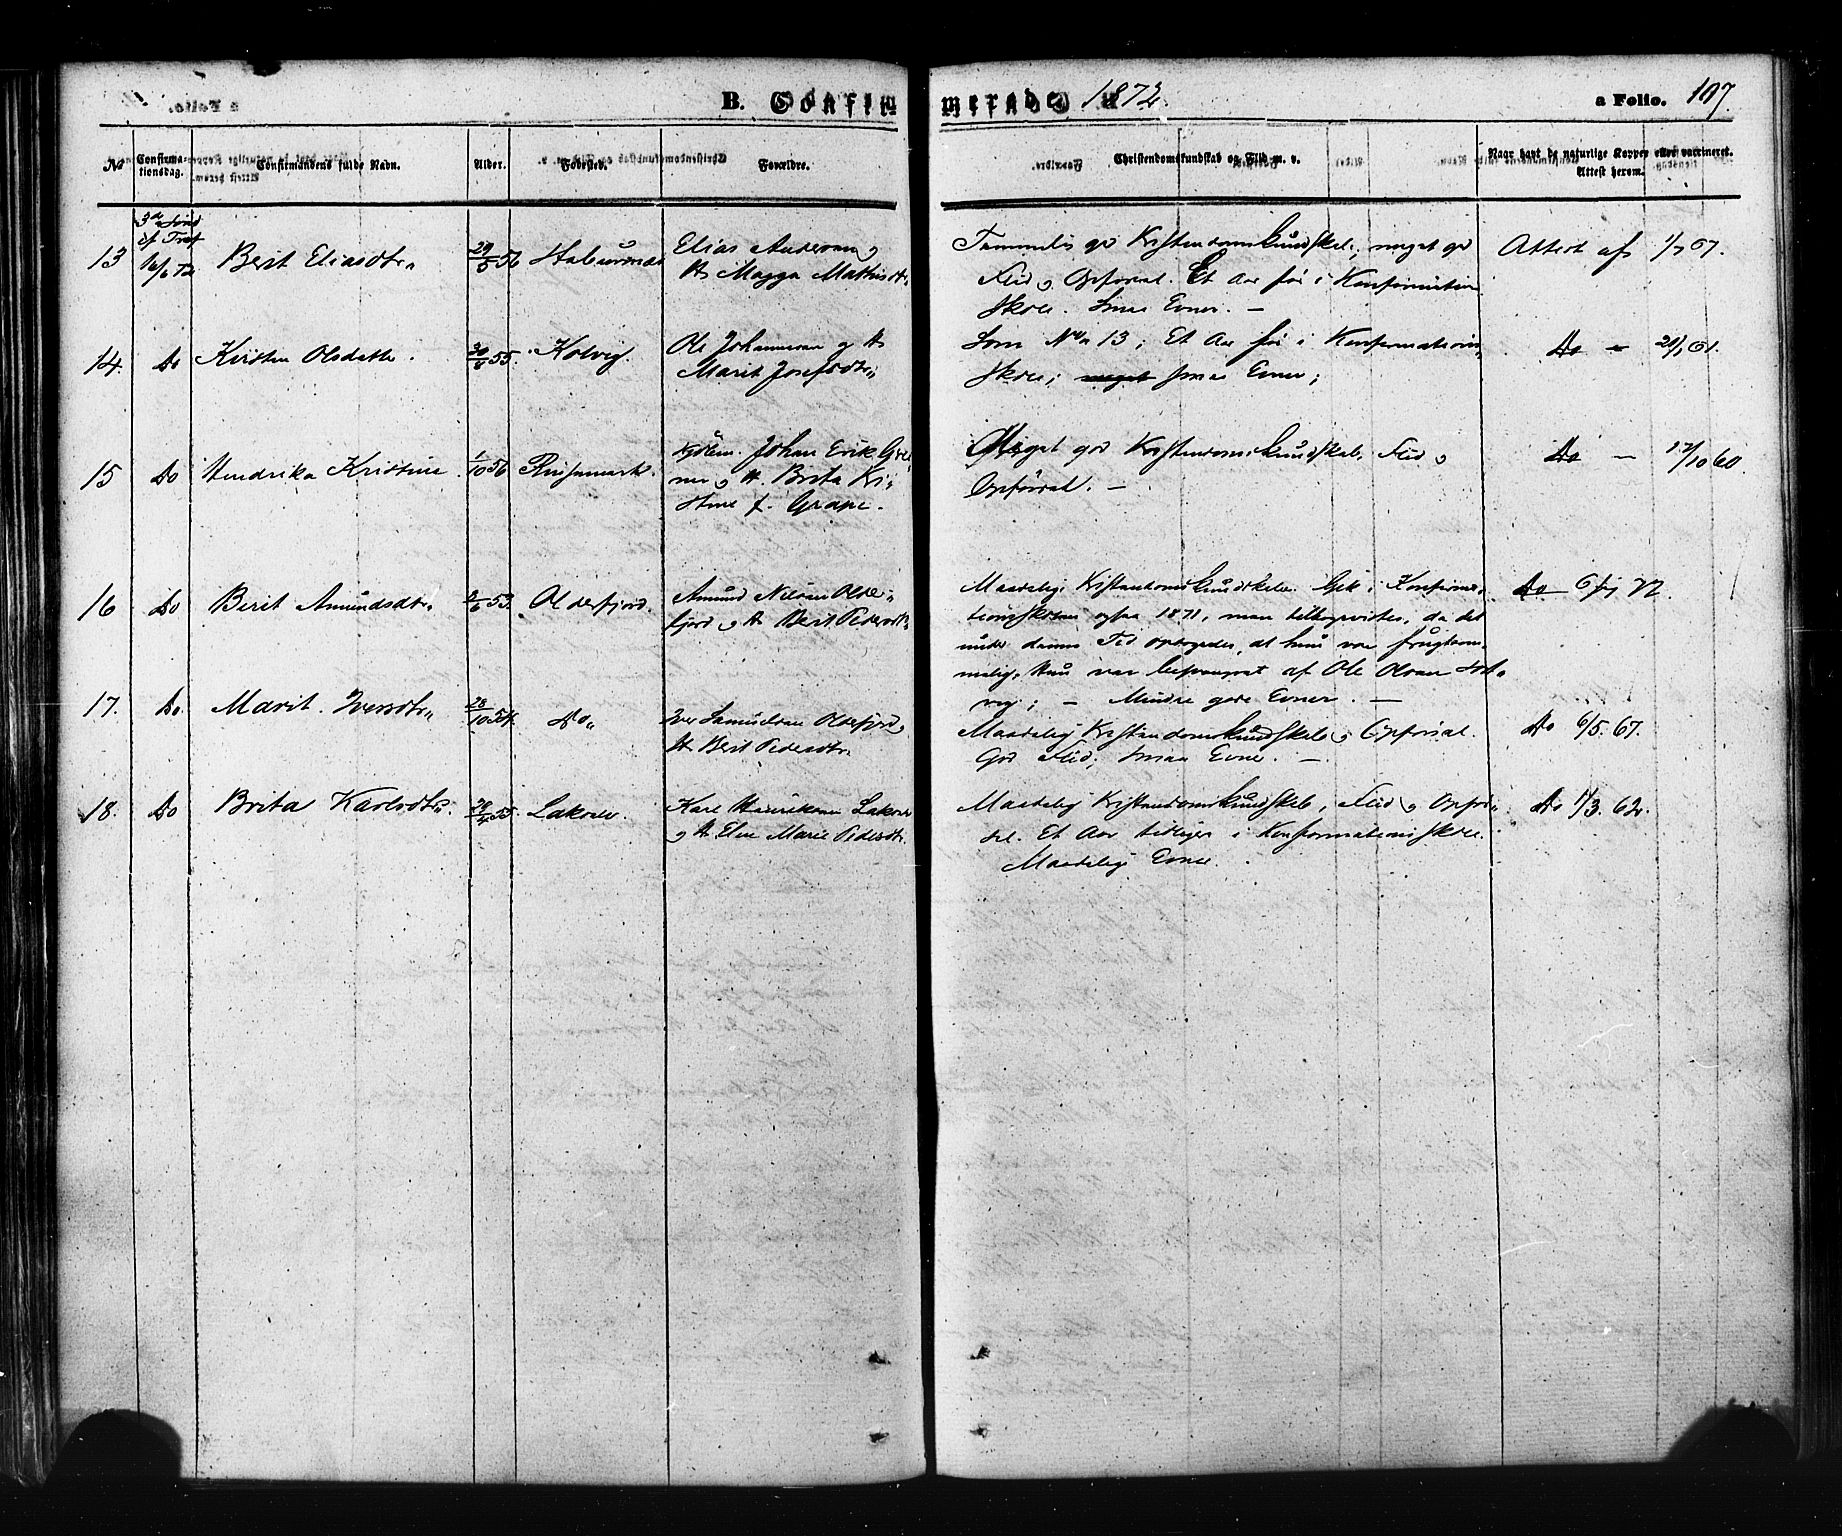 B. Confirmerede 1872. a Folio. 107.
No
Confirmationsdag.
Confirmandens fulde Navn.
Alder.
Fødested.
Forældre.
Christendomskundskab og Flid m. v.
Naar havt de naturlige Kopper eller vaccineret.
Attest herom.
3die Sønd
ef Tref
13 16/6 72 Berit Eliasdtr 29/5 56
Elias Andersen og
H. Magga Mathisdtr
Temmelig god Kristendomskundskab, meget god
Flid og Opførsel. Et Aar før i Konfirmations
Skole. Smaa Evner. —
Attest af 1/7 67.
14. Do Kristen Olsdatter. 55. Kolvig.
Ole Johannesen og H
Marit Josefsdtr
Som No 13; Et Aar før i Konfirmations
Skole; meget smaa Evner;
Do — 61.
15 Do Hendrika Kristine 1/10 56
Johan Erik
og H. Brita Kri-
stine f. Grape.
Meget god Kristendomskundskab, Flid og
Opførsel. —
Do — 17/10 60.
16 Do Berit Amundsdtr 2/6 53. Olderfjord.
Amund Nilsen Older-
fjord og H Berit Pedersdtr
Maadelig Kristendomskundskab. Gik i Konfirma-
tionsskolen ogsaa 1871, men tilbagevistes, da det
under denne Tid opdagedes, at hun var frugtsom-
melig, Hun var besvangret af Ole Olsen
— Mindre gode Evner. —
Do
17. Do. Marit Iversdtr 28/10 54. Do
Iver Samuelsen Olderfjord og
H Berit Pedersdtr
Maadelig Kristendomskundskab og Opførsel.
God Flid; smaa Evner. —
Do 6/5. 67.
18. Do Brita Karlsdtr 28/4 55. Lakselv.
Karl Henriksen Lakselv
og H Elen Marie Pedersdtr.
Maadelig Kristendomskundskab, Flid og Opfør-
sel. Et Aar tidligere i Konfirmationsskole.
Maadelige Evner.
Do 1/3. 62.